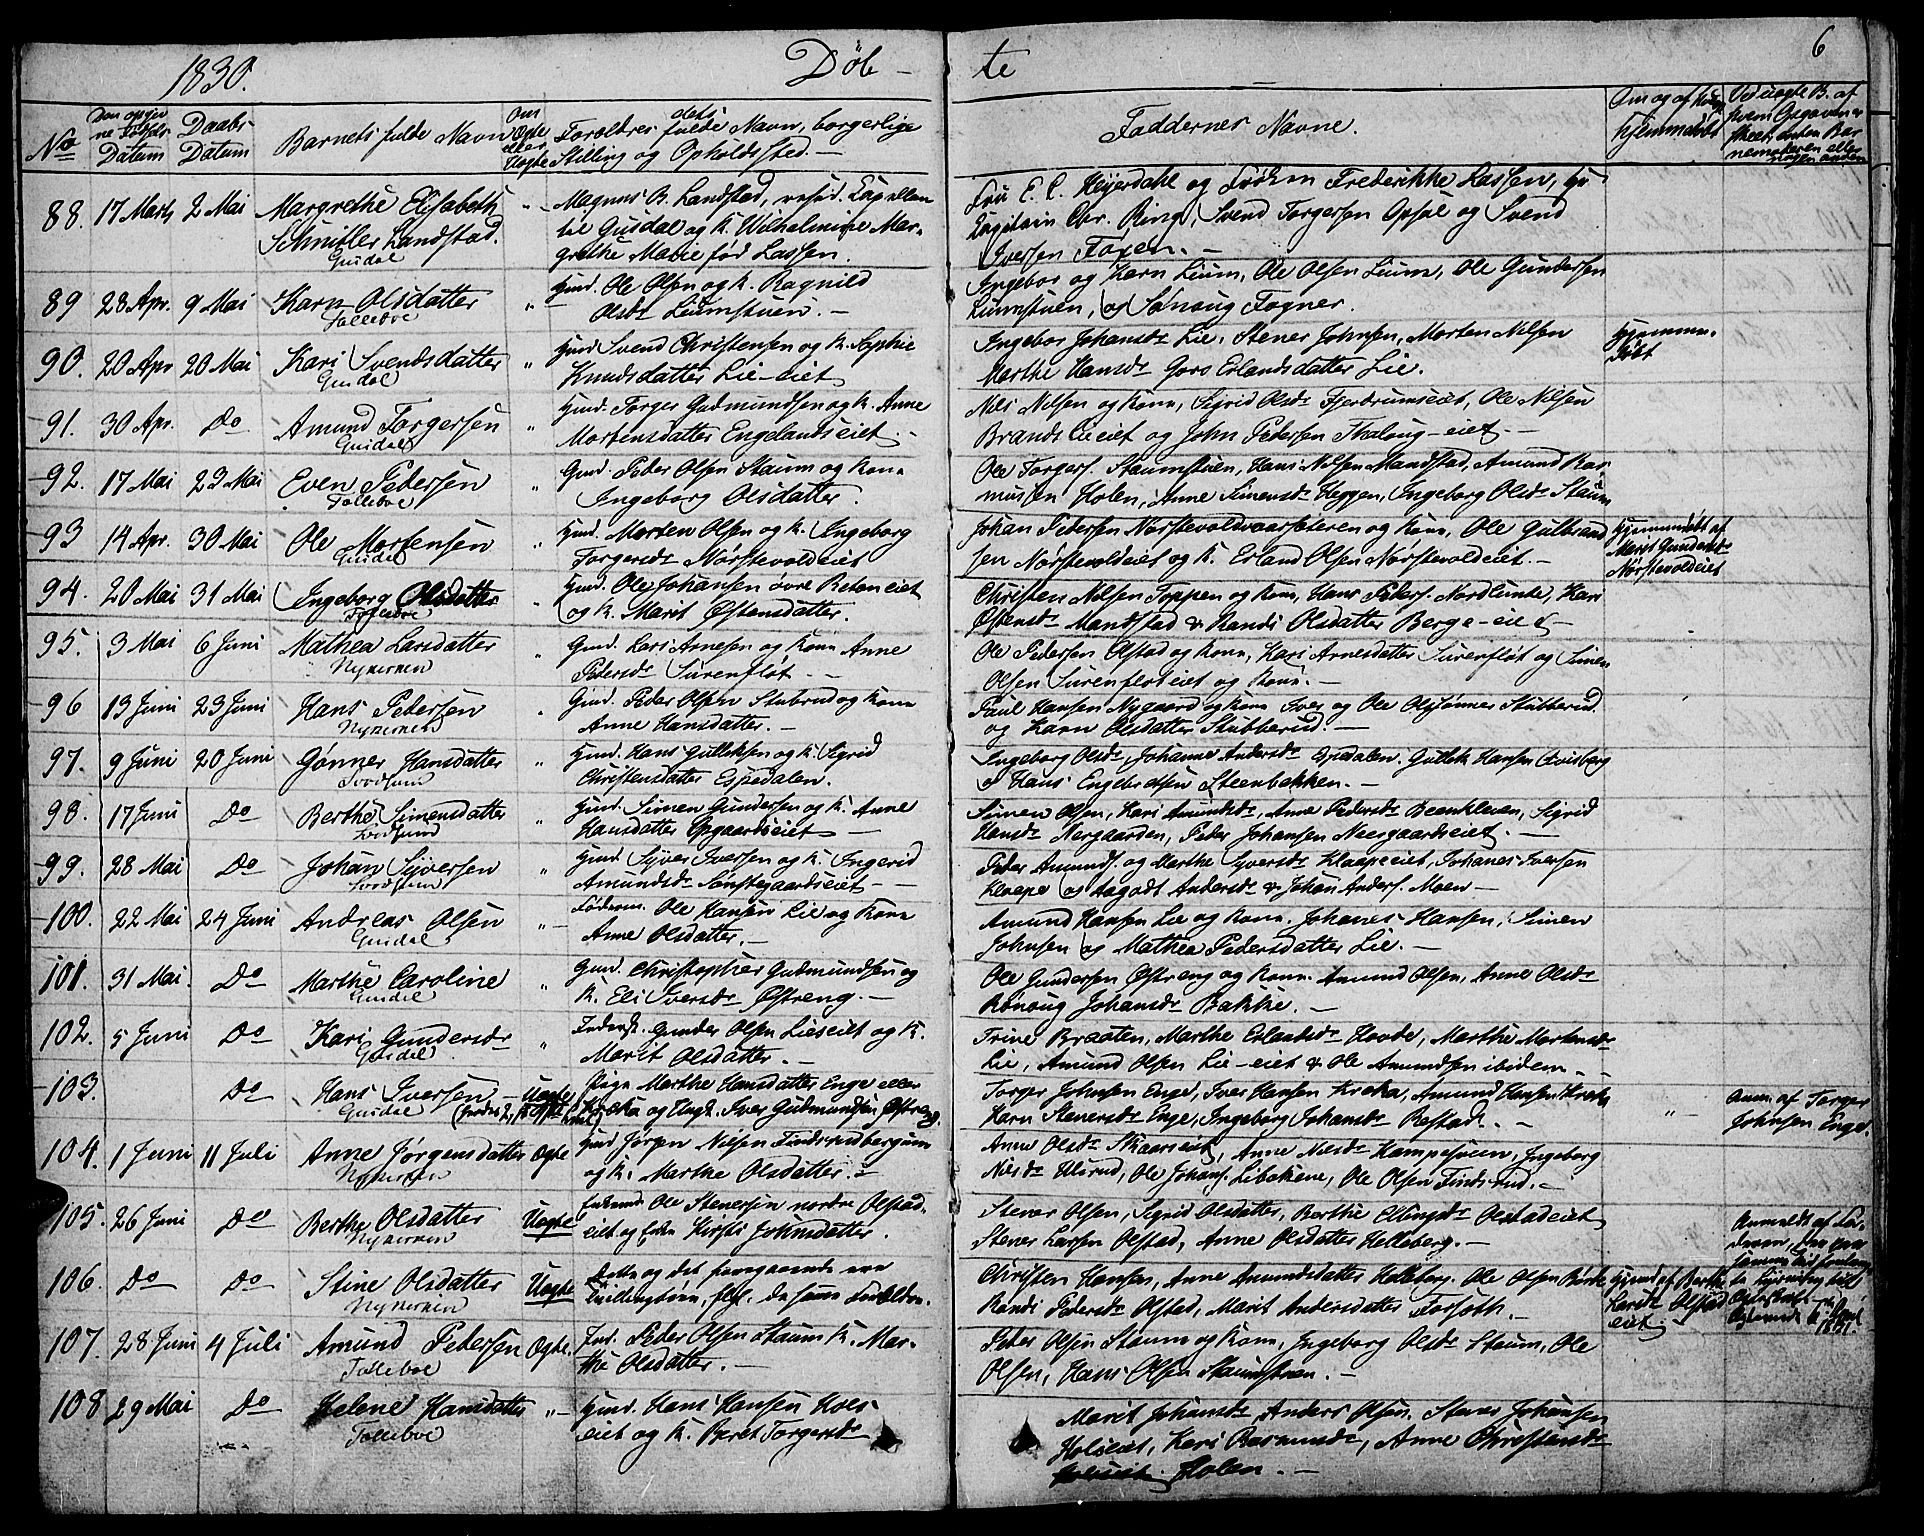 1830.
Döb-
te
6
No
Datum
Daabs
Datum
Barnets fulde Navn
Om
Ægte
eller
Uægte
Foreldres fulde Navn, borgerlige
Stilling og Opholdssted.
Faddernes Navne.
Hjemmedøbt
88. 17 Marts 2 Mai Margrethe Elisabeth
Schnitler Landstad.
Gusdal
Magnus B. Landstad, resid. Capellan
til Gusdal og K. Wilhelmine Mar-
grethe Marie fød Lassen.
Fru E. C. Heyerdahl og Frøken Frederikke Lassen,
Capitain Chr. Ring, Svend Torgersen Opsal og Svend
Iversen Foxen.
89 28 Apr. 9 Mai Karn Olsdatter
Folleboe
Gmd. Ole Olsen og K. Ragnild
Olsdr Liumstuen.
Ingebor og Karn Lium, Ole Olsen Lium, Ole Gundersen
Liumstuen, og Fogner.
90. 20 Apr 20 Mai Kari Svendsdatter
Gusdal
Hmd Svend Christensen og K. Sophie
Knudsdatter Lie-eiet
Ingebor Johansdr Lie, Stener Johnsen, Morten Nilsen
Marthe Hansdr Goro Erlandsdatter Lie.
Hjemme-
døbt
91. 30 Apr. Do Amund Torgersen
Gusdal
Hmd. Torger Gudmundsen og K. Anne
Mortensdatter Engelandseiet.
Nils Nilsen og Kone, Sigrid Olsdr Fjerdrumseiet, Ole Nilsen
Brandslieeiet og John Pedersen Thaloug-eiet.
92. 17 Mai 23 Mai Even Pedersen
Folleboe
Gmd. Peder Olsen Staum og Kone
Ingeborg Olsdatter.
Ole Torgers. Staumstuen, Hans Nilsen Mandstad, Amund Ras-
mussen Holen, Anne Simensdr Heggen, Ingeborg Olsdr Staum
93 14 Apr. 30 Mai Ole Mortensen
Gusdal
Hmd. Morten Olsen og K. Ingeborg
Torgersdr Nörstevoldeiet
Johan Pedersen Nörstevoldvaarseteren og Kone, Ole Gulbrand
sen Nörstevoldeiet og K. Erland Olsen Nörstevoldeiet.
Hjemmedøbt af
Marit Gundersdr
Nörstevoldeiet
94. 20 Mai 31 Mai Ingeborg Olsdatter
Folleboe
Hmd. Ole Johansen övre eiet
og K. Marit Östensdatter.
Christen Nilsen Toppen og Kone, Hans Peders. Nordlunke, Kari
Östensdr Mandstad & Randi Olsdatter Berge-eiet
95. 3 Mai 6 Juni Mathea Larsdatter
Nykirken
Gmd. Lars Arnesen og Kone Anne
Pedersdr Surenflöt.
Ole Pedersen Olstad og Kone, Kari Arnesdatter Surenflöt og Simen
Olsen Surenfloteiet og Kone.
96 13 Juni 23 Juni Hans Pedersen
Nykirken
Gmd. Peder Olsen Stubrud og Kone
Anne Hansdatter.
Paul Hansen Nygaard og Kone Iver og Ole Olssönner Stubberud
og Karn Olsdatter Stubberud.
97. 9 Juni 20 Juni Gönner Hansdatter
Svodsum
Hmd. Hans Gulleksen og K. Sigrid
Christensdatter Espedalen.
Ingeborg Olsdr Johanne Andersdr Espedalen. Gullek Hansen
& Hans Engebretsen Steenbakken.
98. 17 Juni Do Berthe Simensdatter
Svodsund
Hmd. Simen Gundersen og K. Anne
Hansdatter Opgaardseiet
Simen Olsen, Kari Amundsdr, Anne Pedersdr Beenkleven, Sigrid
Hansdr Nergaarden, Peder Johansen Neergaardseiet.
99. 28 Mai Do Johan Syversen
Svodsum
Hmd. Syver Iversen og K. Ingerid
Amundsdr Sönstegaardseiet
Peder Amunds. og Marthe Syversdr Klaapeeiet, Johanes Iversen
Klaape og Aagodt Andersdr & Johan Anders. Moen
100. 22 Mai 24 Juni Andreas Olsen
Gusdal
Ole Hansen Lie og Kone
Anne Olsdatter.
Amund Hansen Lie og Kone. Johanes Hansen, Simen
Johnsen og Mathea Pedersdatter Lie.
101. 31 Mai. Do Marthe Caroline
Gusdal
Gmd. Christopher Gudmundsen og
K. Eli Iversdr Östreng.
Ole Gundersen Östreng og Kone. Amund Olsen, Anne Olsdr
Rönoug Johansdr Bakke.
102. 5 Juni Do Kari Gundersdr
Gusdal
Inderst. Gunder Olsen Lieseiet og K.
Marit Olsdatter.
Trine Braaten, Marthe Erlandsdr Hovde, Marthe Mortensdr
Lie, Amund Olsen Lie-eiet & Ole Amundsen ibidem.
103. Do Hans Iversen
Gusdal
Uægte
Pige Marthe Hansdatter Enge eller
Kreka og Ungk. Iver Gudmundsen Östreng.
Torger Johnsen Enge, Iver Hansen Kreka, Amund Hansen Kreke
Karn Stenersdr Enge, Ingeborg Johansdr Rostad.
Anm. af Torger
Johnsen Enge.
104. 1 Juni 11 Juli Anne Jørgensdatter
Nykirken
Ægte
Gmd Jörgen Nilsen Findsrudbergum
og K. Marthe Olsdatter.
Anne Olsdr Skaarseiet, Anne Nilsdr Kampesveen, Ingeborg
Nilsdr Ulsrud, Ole Johans. Libakkene, Ole Olsen Findsrud.
105. 26 Juni Do Berthe Olsdatter
Nykirken
Uægte
Enkemd. Ole Stenersen nordre Olstad-
eiet og Enke Kirsti Johnsdatter.
Stener Olsen, Sigrid Olsdatter, Berthe Ellingsdr Olstadeiet
Stener Larsen Olstad, Anne Olsdatter Helleberg.
106. Do Do Stine Olsdatter
Nykirken
Uægte
Dette og det foregaaende ere
Tvillingbörn, flgl. de samme Forældre.
Christen Hansen, Anne Amundsdatter Helleberg. Ole Olsen
Randi Pedersdr Olstad, Marit Andersdatter Forsoth.
Hjemd. af Berthe
Larsdr Olstad
eiet
107. 28 Juni 4 Juli Amund Pedersen
Folleboe
Ægte.
Peder Olsen Staum K. Mar-
the Olsdatter.
Peder Olsen Staum og Kone, Ingeborg Olsdr Staum, Ole
Olsen, Hans Olsen Staumstuen.
108 29 Mai Do Helene Hansdatter
Folleboe
Hmd. Hans Hansen Hols-
eiet og K. Beret Torgersdr
Marit Johansdr, Anders Olsen. Stener Johansen
Holseiet, Kari Rasmusdr, Anne Christensdr
Holen.